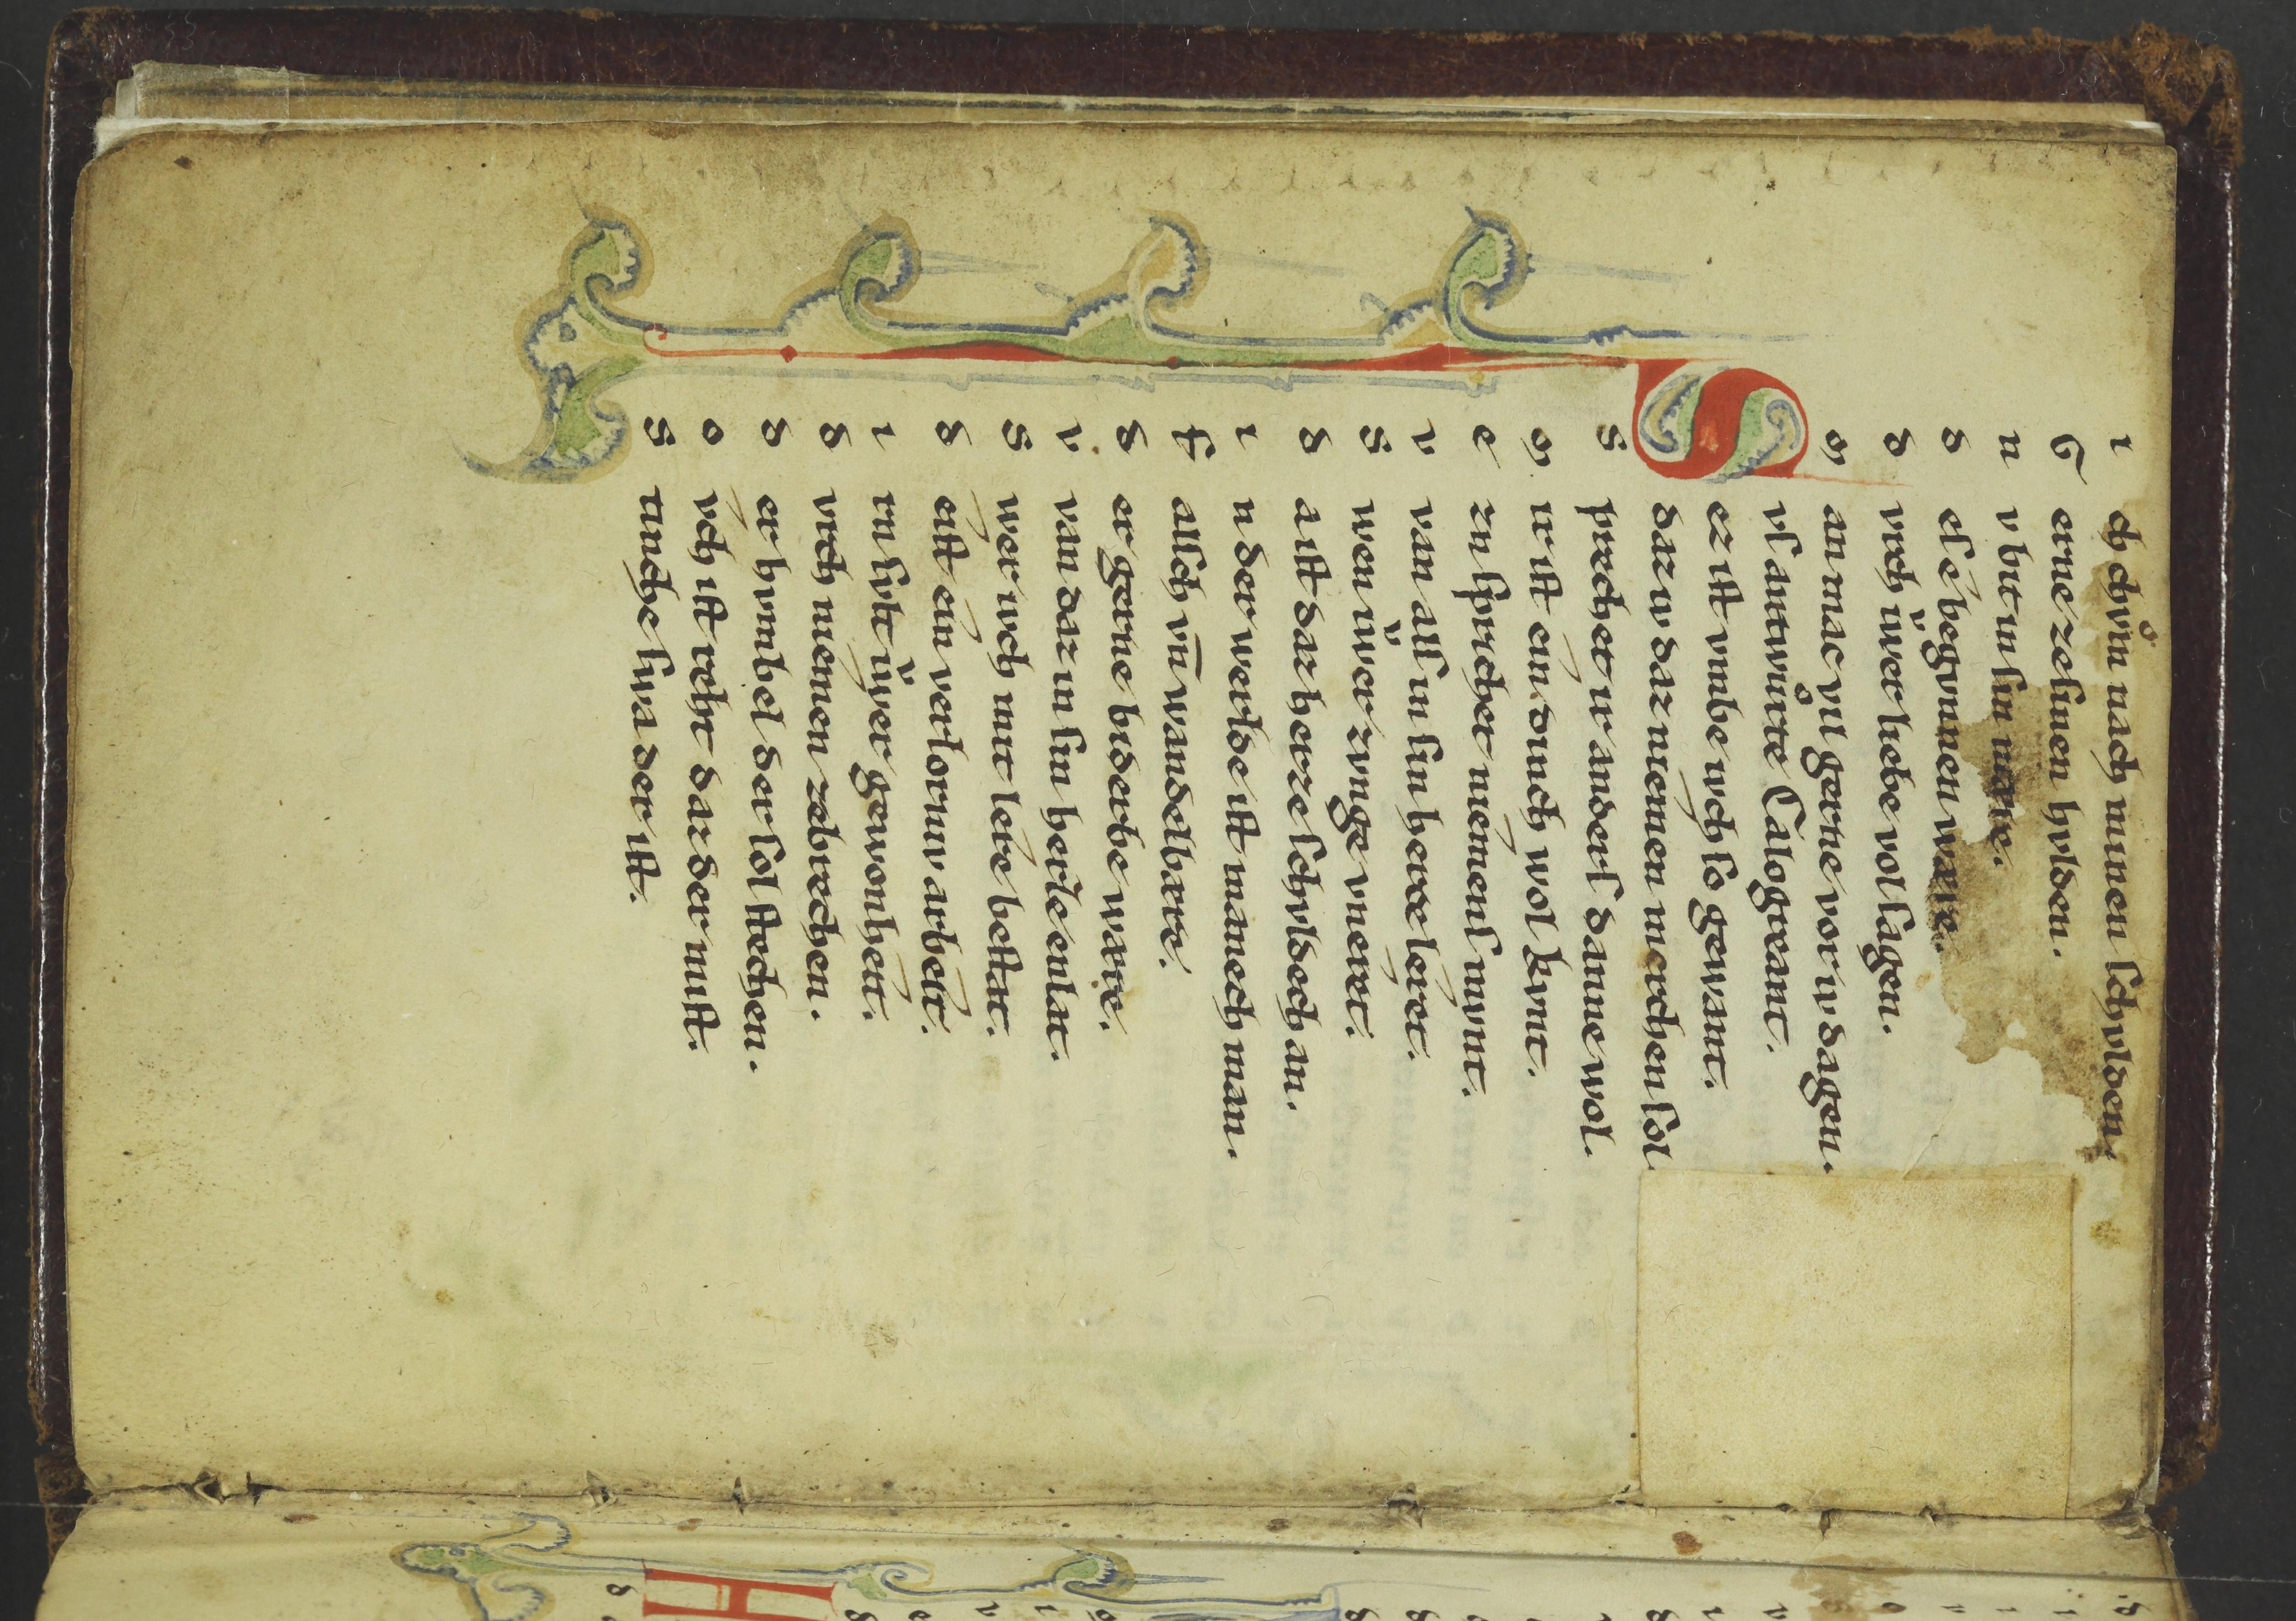 ich chv̊m nach minen ſchvlden.
Gerne ze ſinen hvlden.
nv bit in ſin mære.
deſ é begvnnen wære.
dvrch iwer liebe vol ſagen.
Man mac vil gerne vor iv dagen.
Svſ antwv̊rte Calogreant.
ez iſt vmbe vch ſo gewant.
daz iv daz niemen merchen ſol
Sprechet ir anderſ danne wol.
Mir iſt ein dinch wol kvnt.
ezn ſprichet niemenſ mvnt.
vvan alſ in ſin herze leret.
Swen iwer zvnge vneret.
da iſt daz herze ſchvldech an.
in der werlde iſt manech man.
falſch vn̄ wandelbære.
der gerne biderbe wære.
vvan daz in ſin herze enlat.
Swer vch mit lere beſtat.
deiſt ein verlorniv arbeit.
irn ſvlt iwer gewonheit.
dvrch niemen zebrechen.
der hvmbel der ſol ſtechen.
ovch iſt reht daz der miſt.
Stinche ſwa der iſt.